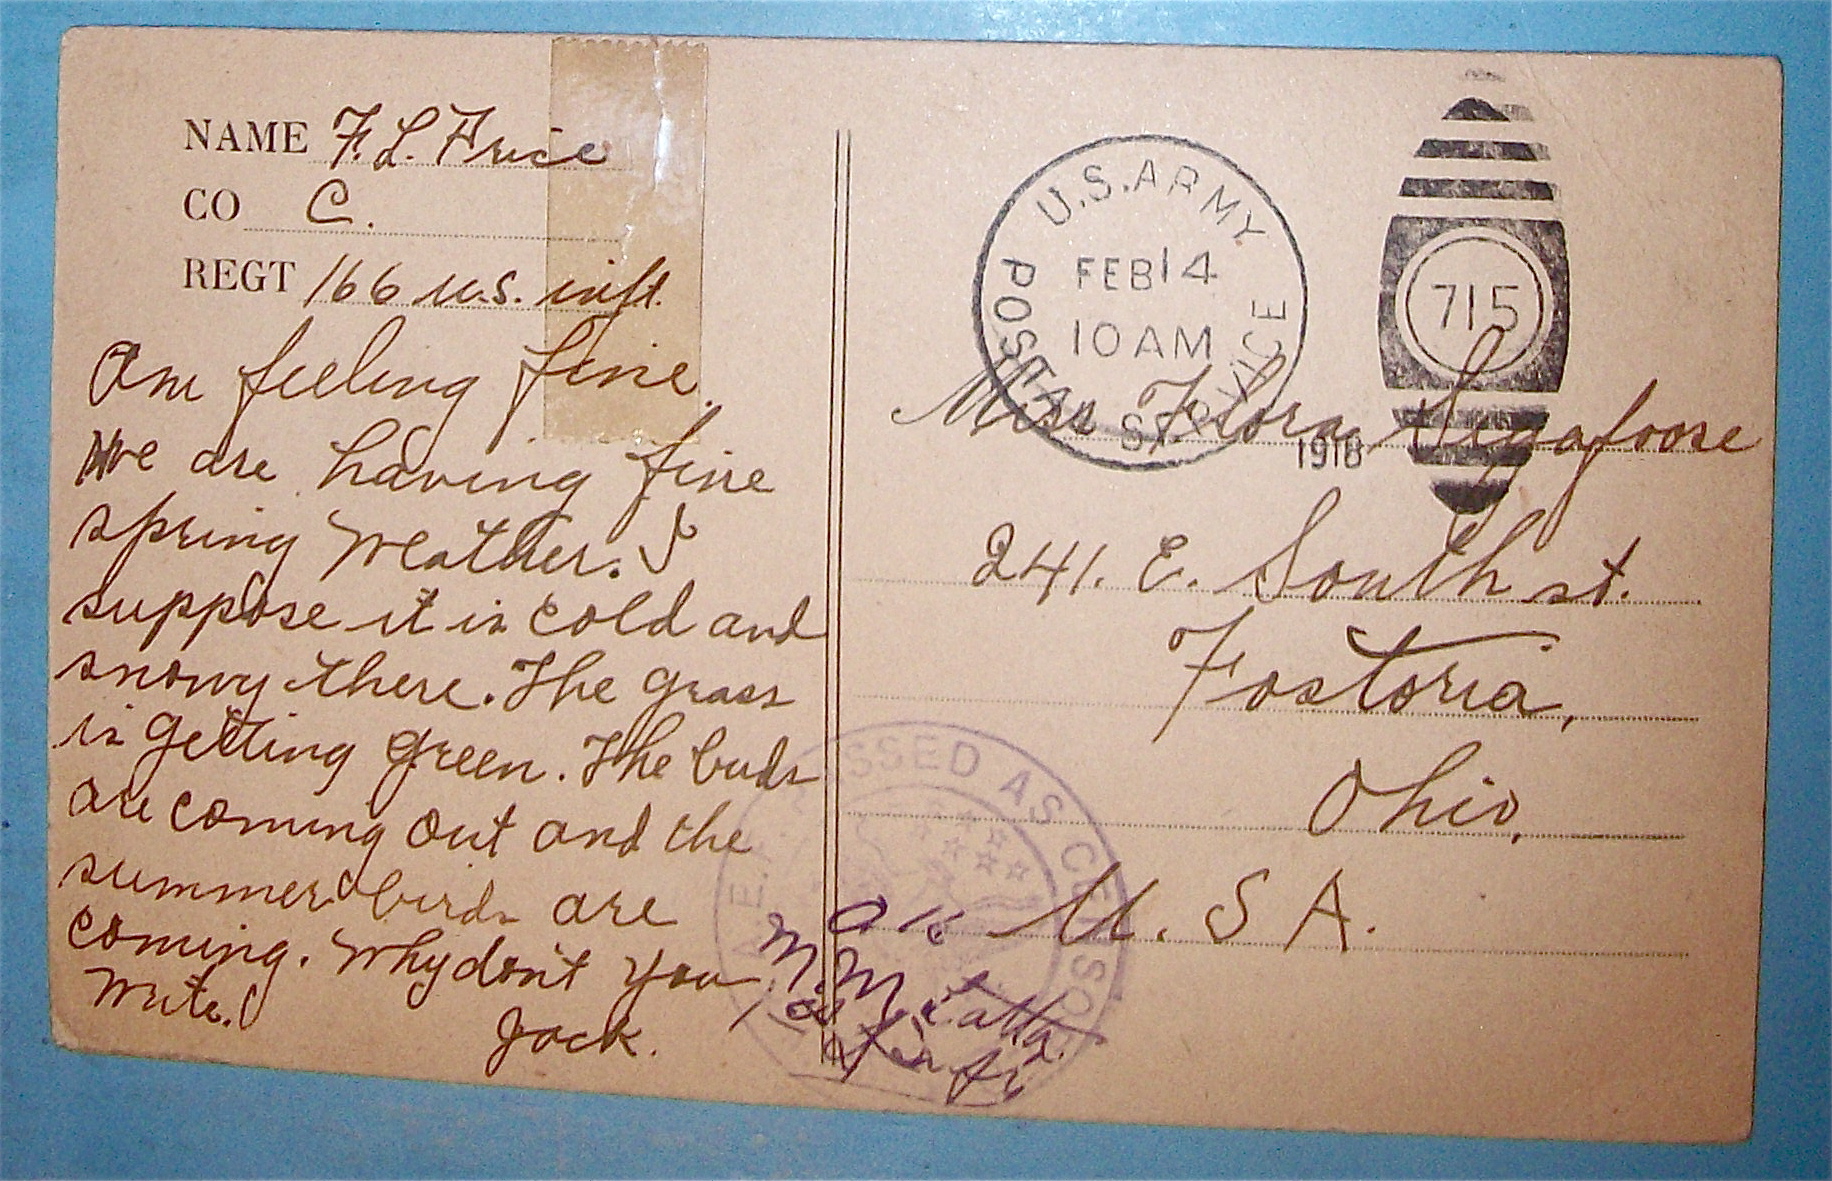 NAME F. L. Price
CO C.
REGT 166 U.S. inft.
Am feeling fine.
We are having fine
spring weather. I
suppose it is cold and
snowy there. The grass
is getting green. The buds
are coming out and the
summer birds are
coming. Why don't you
write.
Jack.
U.S. ARMY
POSTAL SERVICE
FEB 14
10 AM
1918
715
Miss Flora Sigafoose
241. E. South st.
Fostoria,
Ohio,
U. S A.
A.E.F. PASSED AS CENSORED
OK